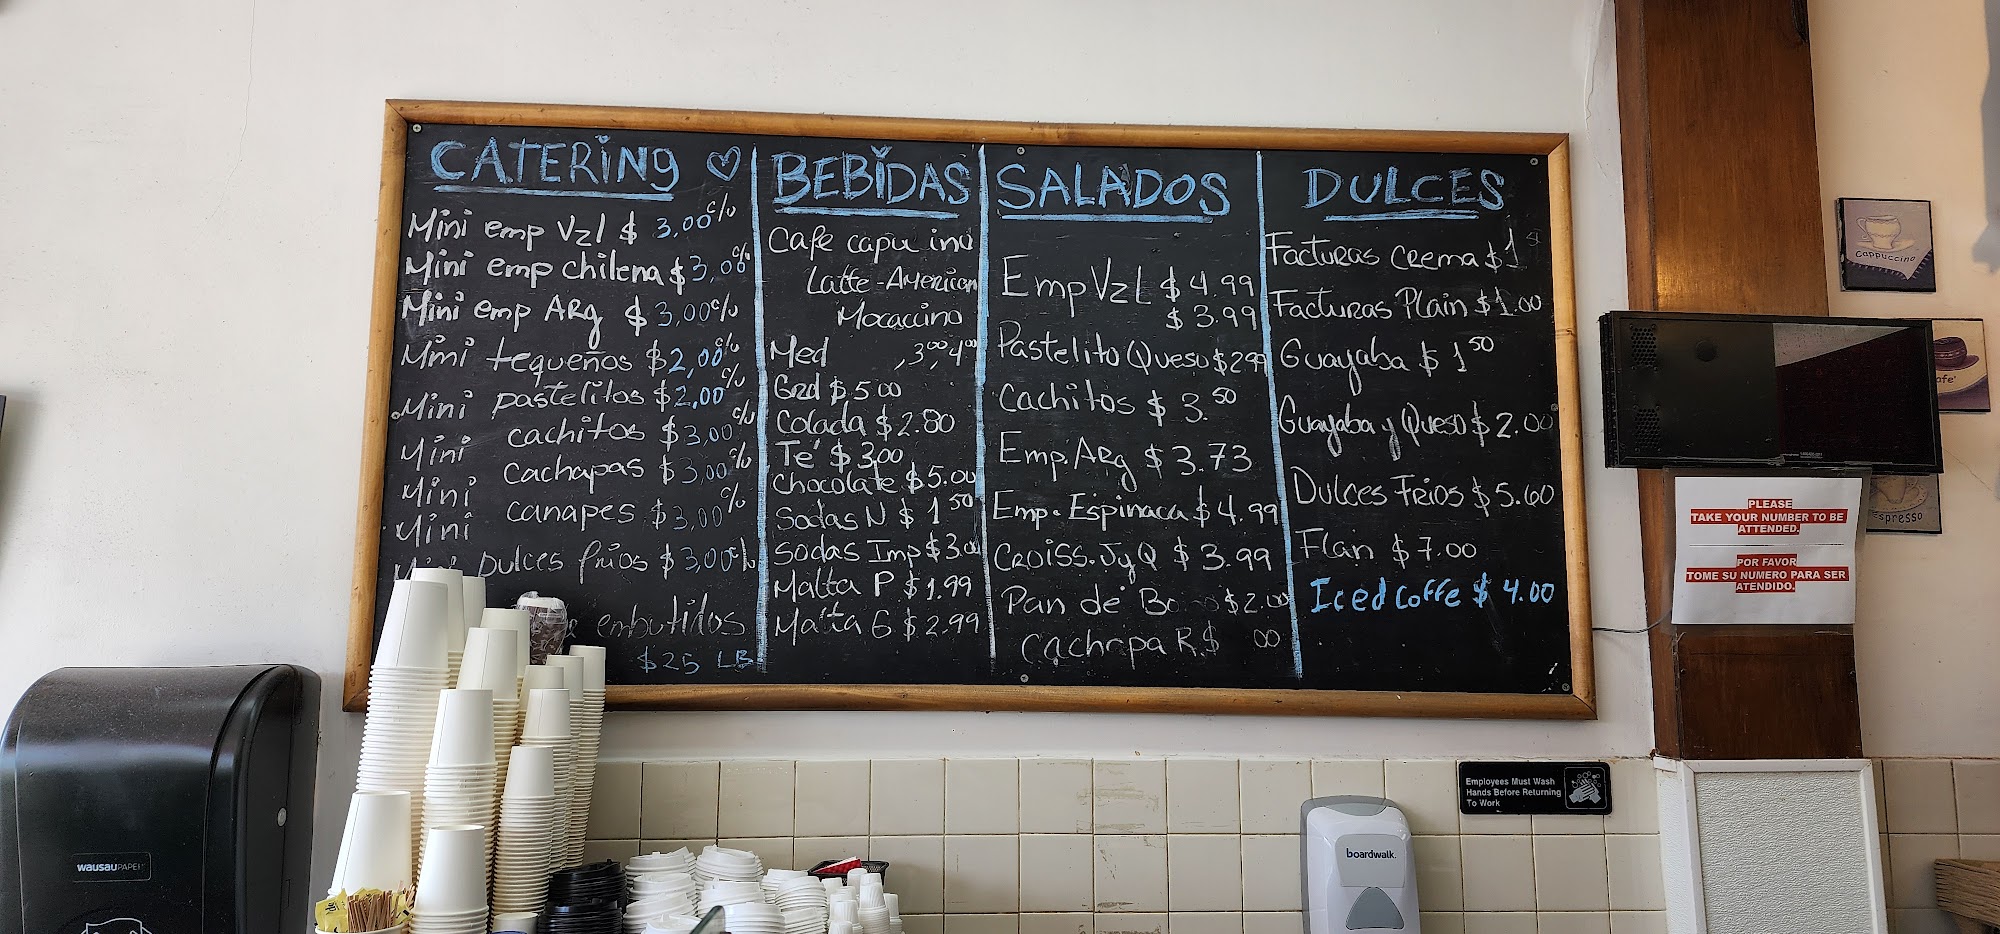 CATERING
Mini emp Vzl $ 3,00 c/u
Mini emp chilena $ 3,00 c/u
Mini emp ARg $ 3,00 c/u
Mini tequeños $ 2,00 c/u
Mini pastelitos $ 2,00 c/u
Mini cachitos $ 3,00 c/u
Mini cachapas $ 3,00 c/u
Mini canapes $ 3,00 c/u
Dulces frios $ 3,00 c/u
embutidos
$25 LB
BEBIDAS
Cafe
Latte-American
Mocaccino
Med ,3,00 4,00
Grd $ 5 00
Colada $ 2.80
Té $ 3.00
Chocolate $ 5.00
Sodas N $ 1 50
Sodas Imp $ 3.00
Malta P $ 1.99
Malta G $ 2.99
SALADOS
Emp Vzl $ 4.99
$ 3.99
Pastelito Queso $ 2.99
Cachitos $ 3.50
Emp. Arg $ 3.73
Emp. Espinaca $ 4.99
Croiss. J y Q $ 3.99
Pan de $ 2.00
Cachapa R $ 00
DULCES
Facturas Crema $ 1
Facturas Plain $ 1.00
Guayaba $ 1 50
Guayaba y Queso $ 2.00
Dulces Frios $ 5.60
Flan $ 7.00
Iced Coffe $ 4.00
Cappuccino
afe'
espresso
PLEASE
TAKE YOUR NUMBER TO BE
ATTENDED.
POR FAVOR
TOME SU NUMERO PARA SER
ATENDIDO.
Employees Must Wash
Hands Before Returning
To Work
boardwalk.
WAUSAU PAPER